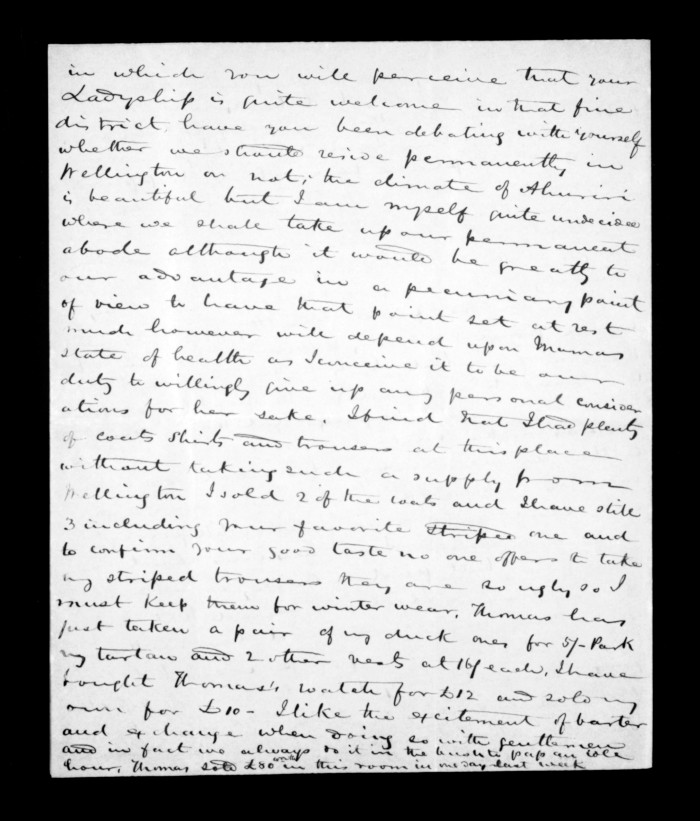 in which you will perceive that your
Ladyship is quite welcome in that fine
district, have you been debating with yourself
whether we should reside permanently in
Wellington or not; the climate of Ahuriri
is beautiful but I am myself quite undecided
where we shall take up our permanent
abode although it would be greatly to
our advantage in a pecuniary point
of view to have that point set at rest
much however will depend upon Mamas
state of health as I conceive it to be our
duty to willingly give up any personal consider
ations for her sake. I find that I had plenty
of coats shirts and trousers at this place
without taking such a supply from
Wellington I sold 2 of the coats and I have still
3 including your favorite striped one and
to confirm your good taste no one offers to take
my striped trousers they are so ugly so I
must keep them for winter wear, Thomas has
just taken a pair of my duck ones for 5/- Park
my tartan and 2 other vests at 16/ each, I have
bought Thomas's watch for £12 and sold my
own for £10 - I like the excitement of barter
and exchange when doing so with gentlemen
and in fact we always do it in the bush to pass an idle
hour, Thomas sold £30 worth in this room in one day last week